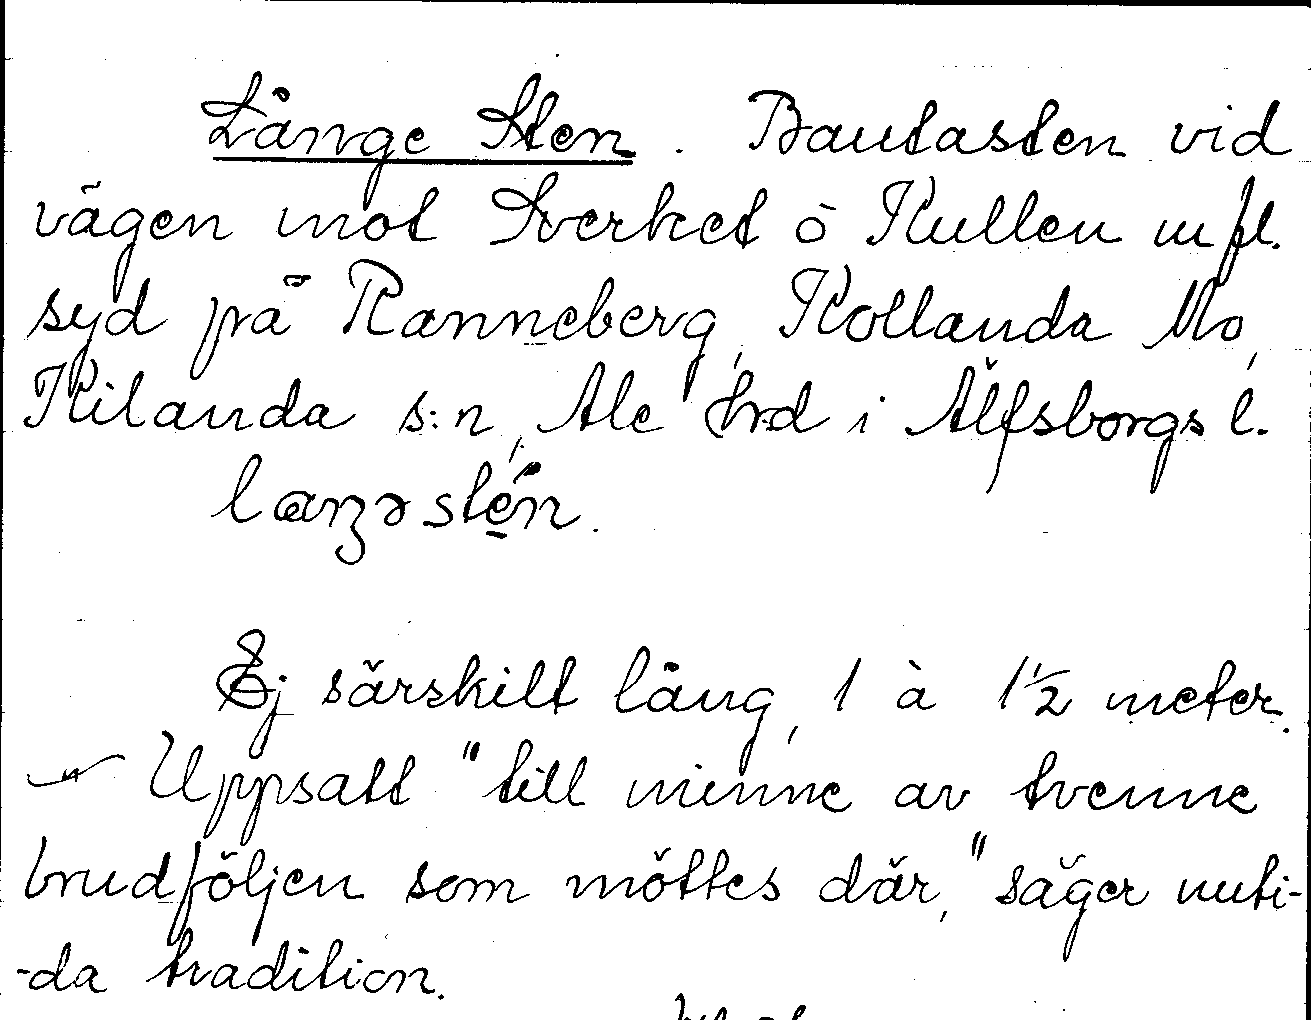 Långe Sten. Bautasten vid
vägen mot Sverket o Kullen m fl.
syd på Ranneberg, Kollanda Mo,
Kilanda s:n, Ale hrd i Älfsborgs l.
Ej särskilt lång, 1 à 1½ meter.
Uppsatt "till minne av tvenne
brudföljen som möttes där," säger nuti-
-da tradition.